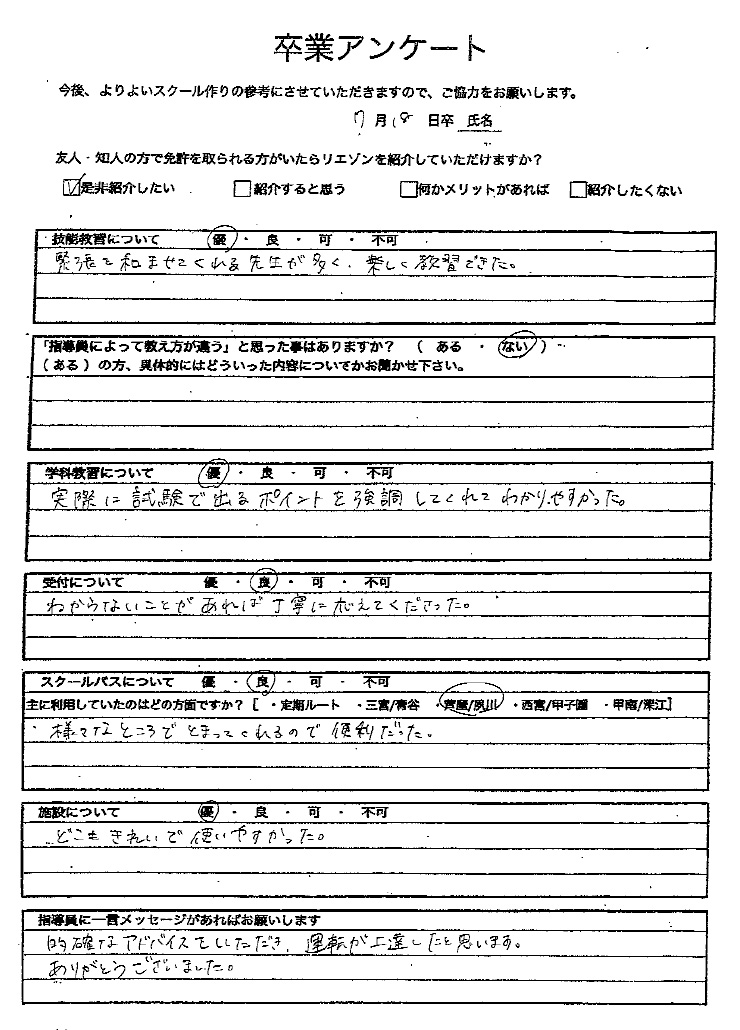 卒業アンケート
今後、よりよいスクール作りの参考にさせていただきますので、ご協力をお願いします。
7月18日卒 氏名
友人・知人の方で免許を取られる方がいたらリエゾンを紹介していただけますか？
☑是非紹介したい □紹介すると思う □何かメリットがあれば □紹介したくない
技能教習について 優 ・ 良 ・ 可 ・ 不可
緊張を和ませてくれる先生が多く、楽しく教習できた。
「指導員によって教え方が違う」と思った事はありますか？ （ ある ・ ない ）
（ある）の方、具体的にはどういった内容についてかお聞かせ下さい。
学科教習について 優 ・ 良 ・ 可 ・ 不可
実際に試験で出るポイントを強調してくれてわかりやすかった。
受付について 優 ・ 良 ・ 可 ・ 不可
わからないことがあれば丁寧に応えてくださった。
スクールバスについて 優 ・ 良 ・ 可 ・ 不可
主に利用していたのはどの方面ですか？［ ・定期ルート ・三宮/青谷 ・芦屋/夙川 ・西宮/甲子園 ・甲南/深江］
様々なところでとまってくれるので便利だった。
施設について 優 ・ 良 ・ 可 ・ 不可
どこもきれいで使いやすかった。
指導員に一言メッセージがあればお願いします
的確なアドバイスをいただき、運転が上達したと思います。
ありがとうございました。